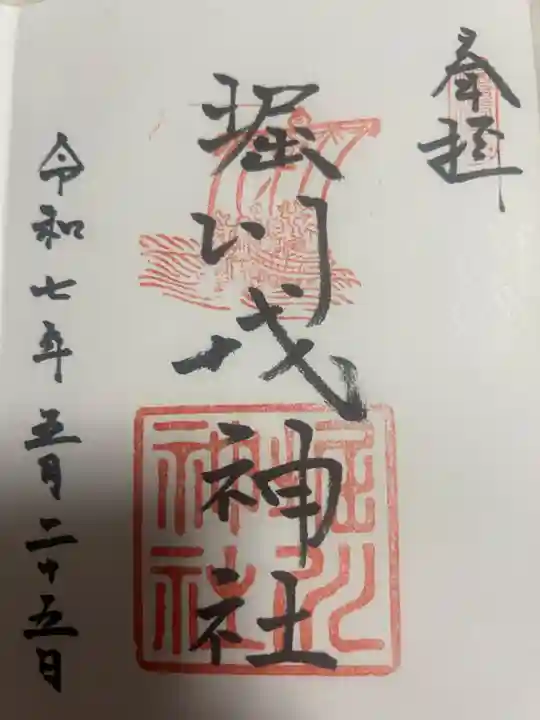 奉拝
堀川戎神社
堀川
神社
令和七年五月二十五日